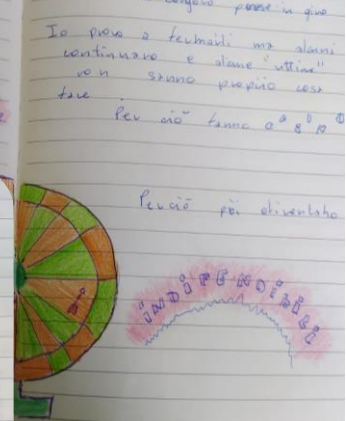 perse in giro
Io provo a fermarli ma alcuni
continuano e alcune "vittime"
non sanno proprio cosa
fare
Per ciò fanno
Per ciò poi diventano
INDIFENDIBILI